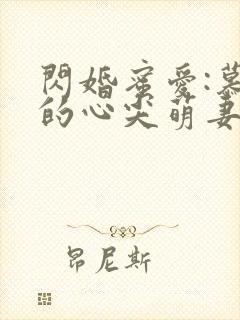 閃婚蜜愛:慕
的心尖萌妻
昂尼斯